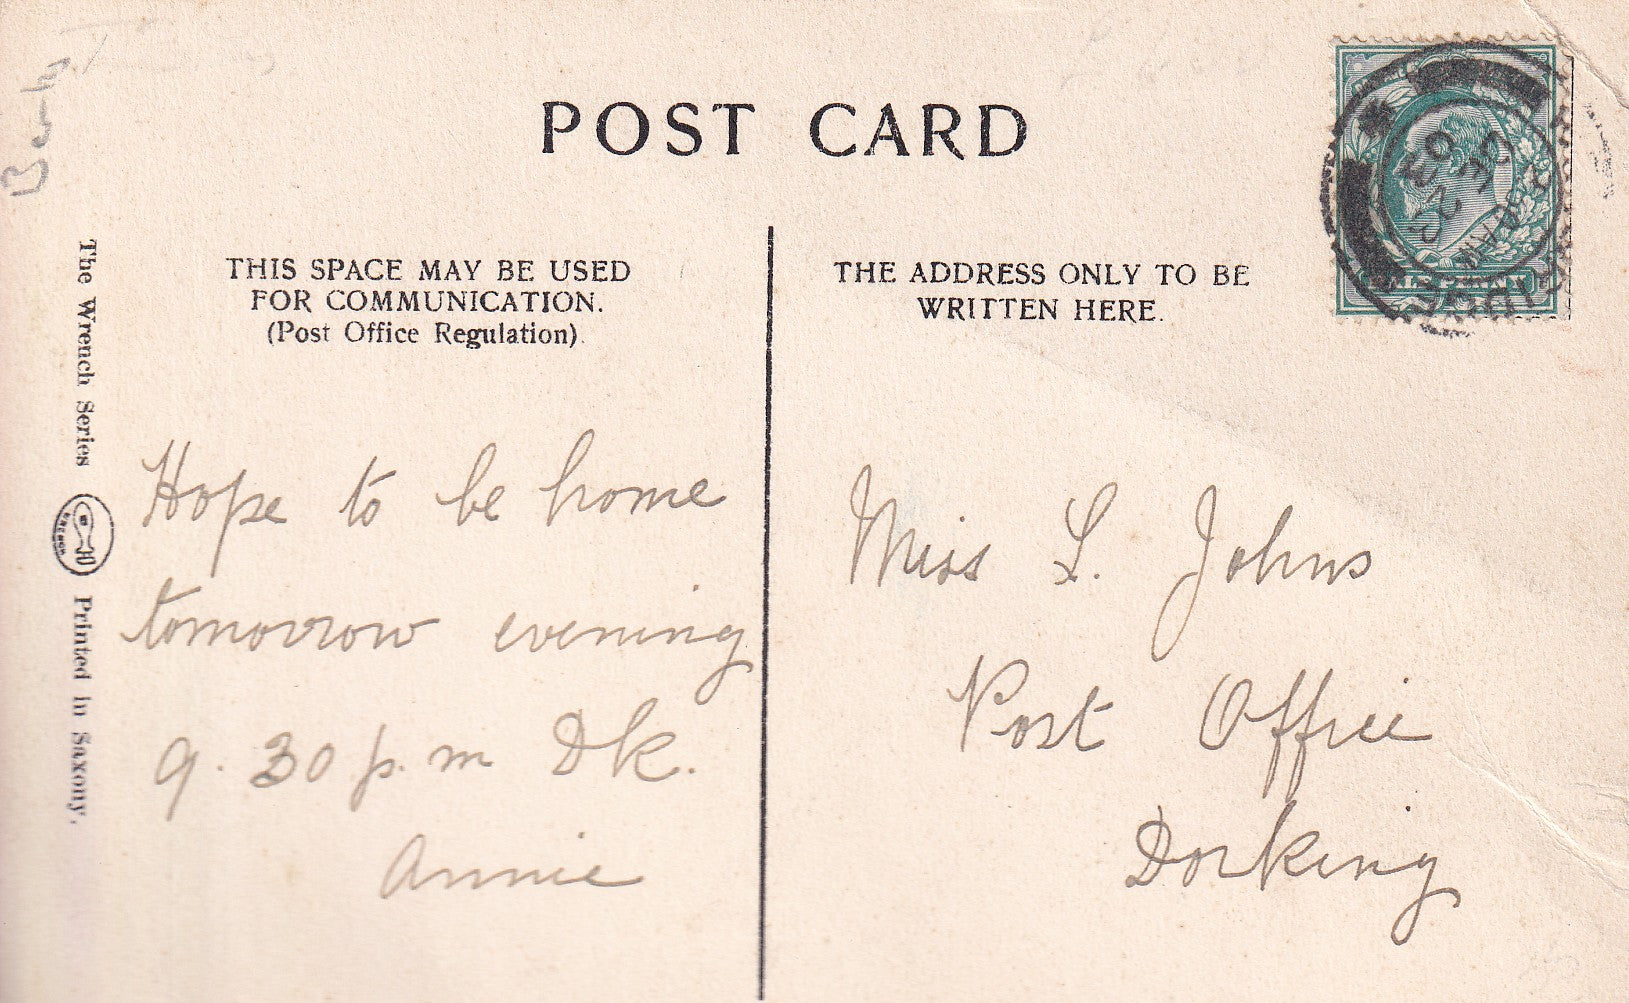 POST CARD
THIS SPACE MAY BE USED
FOR COMMUNICATION.
(Post Office Regulation).
THE ADDRESS ONLY TO BE
WRITTEN HERE.
Hope to be home
tomorrow evening
9.30 p.m Dk.
Annie
Miss L. Johns
Post Office
Dorking
The Wrench Series
Printed in Saxony.
DE 22
03